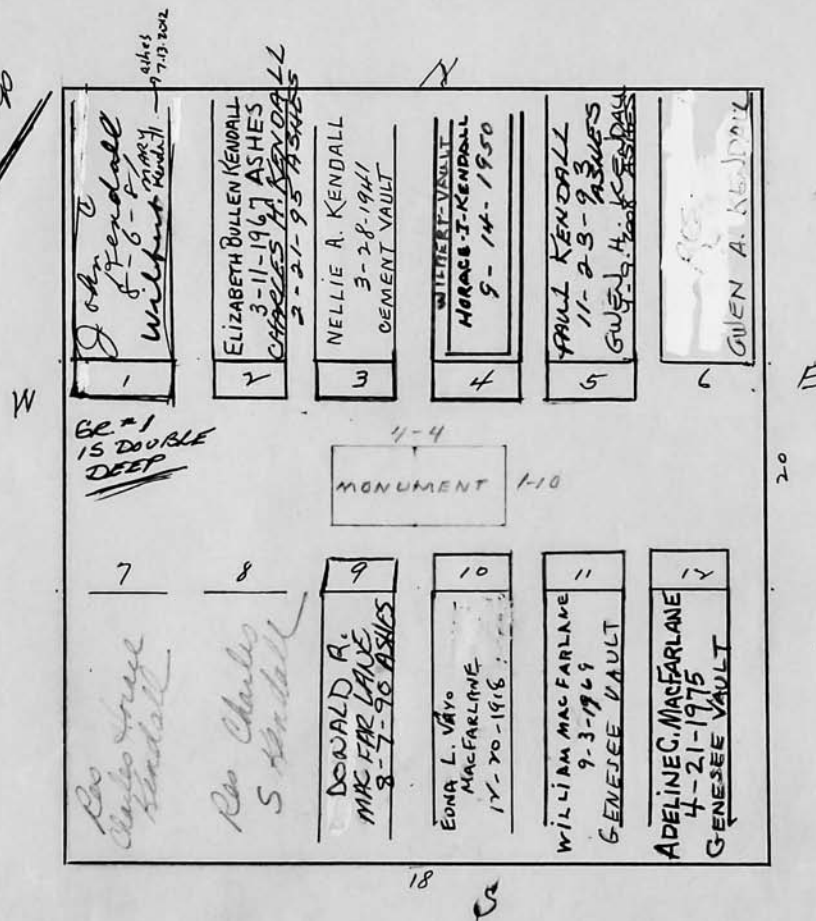 N
W
E
S
20
18
John C
Kendall
8-6-81
Wilbert
MARY
Kendall
ashes
7.13.2012
1
GR. #1
IS DOUBLE
DEEP
ELIZABETH BULLEN KENDALL
3-11-1967 ASHES
CHARLES H. KENDALL
2-21-95 ASHES
2
NELLIE A. KENDALL
3-28-1941
CEMENT VAULT
3
WILBERT-VAULT
HORACE-I-KENDALL
9-14-1950
4
PAUL KENDALL
11-23-93
ASHES
GWEN H. KENDALL
2008 ASHES
5
RES.
GWEN A. KENDALL
6
4-4
MONUMENT
1-10
7
Res
Charles
Kendall
8
Res Charles
S Kendall
9
DONALD R.
MAC FARLANE
8-7-90 ASHES
10
EDNA L. VAYO
MACFARLANE
12-20-1918
11
WILLIAM MACFARLANE
9-3-1969
GENESEE VAULT
12
ADELINE C. MACFARLANE
4-21-1975
GENESEE VAULT